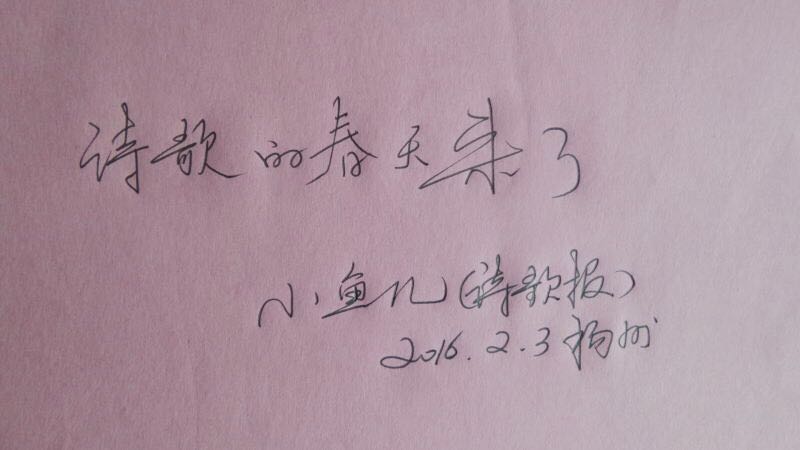 诗歌的春天来了
小鱼儿(诗歌报)
2016.2.3 扬州